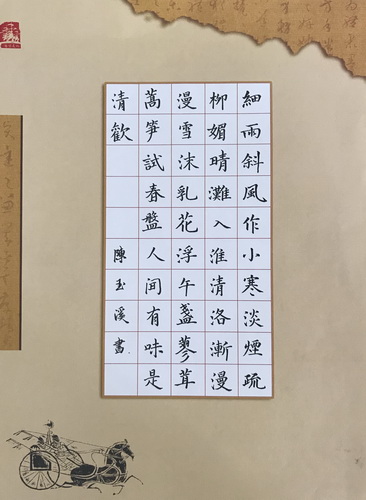 細雨斜風作小寒淡煙疏
柳媚晴灘入淮清洛漸漫
漫雪沫乳花浮午盞蓼茸
蒿笋試春盤人間有味是
清歡
陳玉溪書